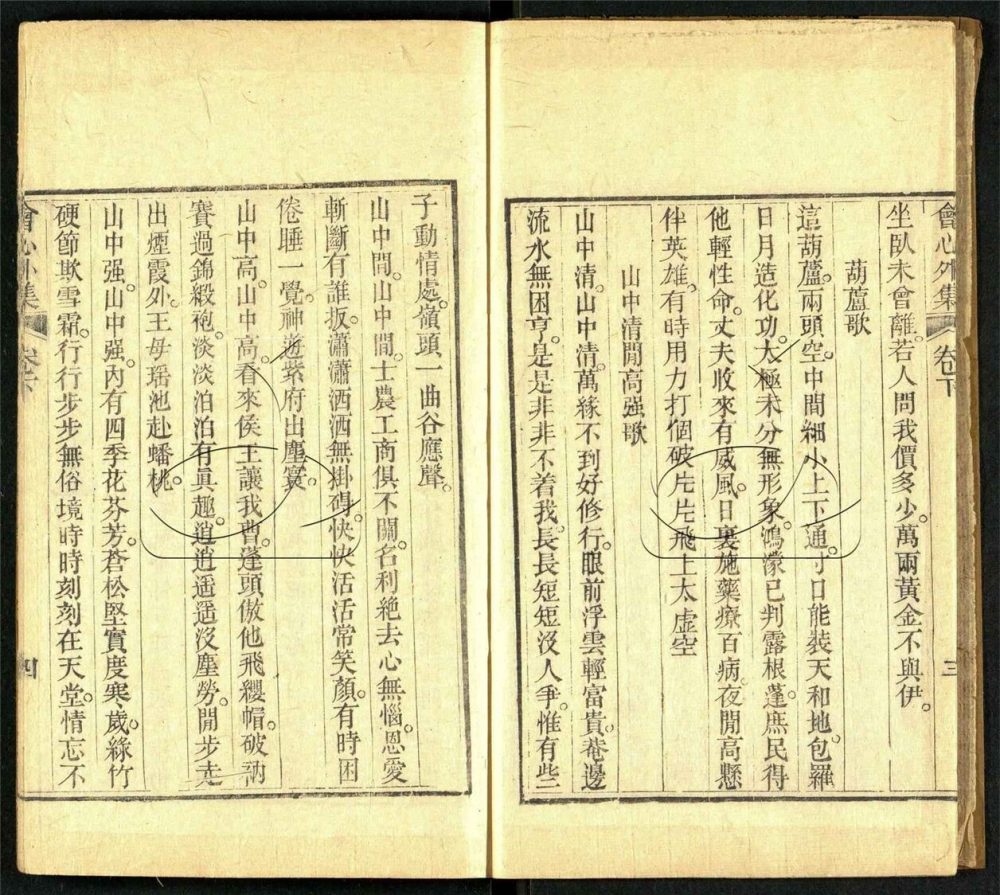 會心外集 卷下 三
坐臥未會離。若人問我價多少。萬兩黃金不與伊。
葫蘆歌
這葫蘆。兩頭空。中間細小上下通。寸口能裝天和地。包羅
日月造化功。太極未分無形象。鴻濛已判露根蓬。庶民得
他輕性命。丈夫收來有威風。日裏施藥療百病。夜閒高懸
伴英雄。有時用力打個破。片片飛上太虛空
山中清閒高强歌
山中清。山中清。萬緣不到好修行。眼前浮雲輕富貴。菴邊
流水無困亨。是是非非不着我。長長短短沒人爭。惟有些
子動情處。嶺頭一曲谷應聲。
山中間。山中間。士農工商俱不關。名利絶去心無惱。恩愛
斬斷有誰扳。瀟瀟洒洒無掛碍。快快活活常笑顏。有時困
倦睡一覺。神遊紫府出塵寰。
山中高。山中高。看來侯王讓我曹。蓬頭傲他飛纓帽。破衲
賽過錦緞袍。淡淡泊泊有眞趣。逍逍遥遥沒塵勞。閒步走
出煙霞外。王母瑶池赴蟠桃。
山中强。山中强。內有四季花芬芳。蒼松堅實度寒歲。綠竹
硬節欺雪霜。行行步步無俗境。時時刻刻在天堂。情忘不
會心外集 四